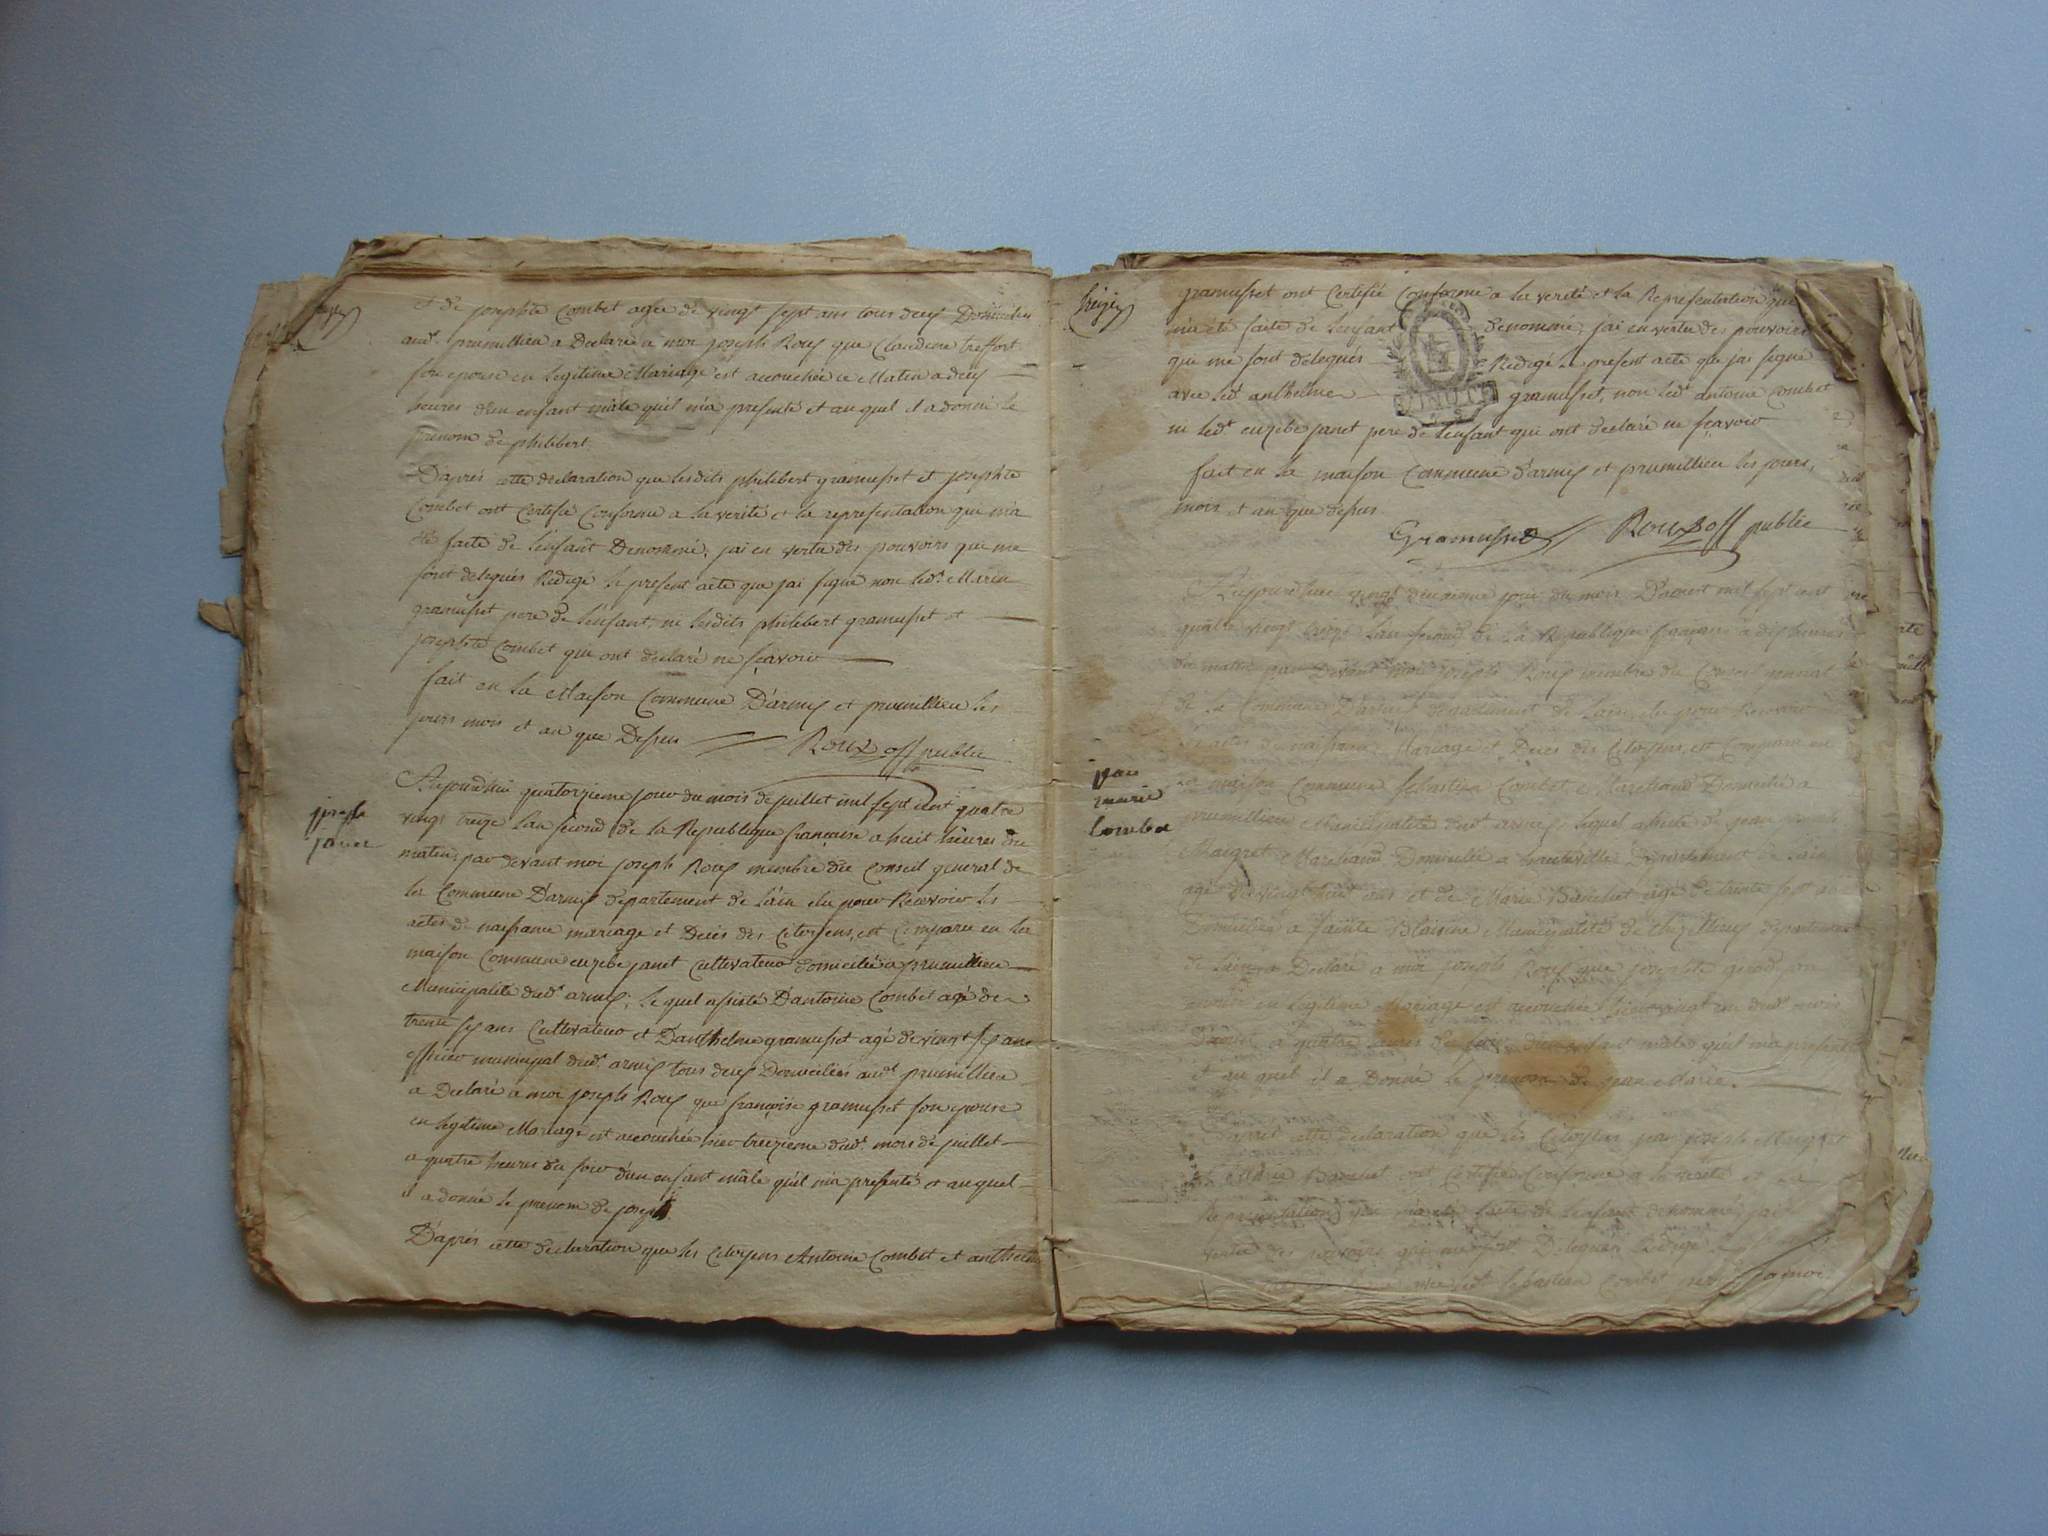 et de josephte Combet agée de vingt sept ans tous deux Domiciliés
aud.t prumillieu a Declaré a moi joseph Roux que Claudine treffort
son epouse en Legitime Mariage est accouchée ce Matin a deux
heures d'un enfant mâle qu'il m'a presenté et au quel il a donné le
prenom de philibert
D'aprés cette declaration que lesdits philibert gramusset et josephte
Combet ont Certifié Conforme a la verité et la representation qui m'a
été faite de l'enfant Denommé, j'ai en vertu des pouvoirs qui me
sont delegués Redigé le present acte que j'ai signé non led.t Marin
gramusset pere de l'enfant, ni lesdits philibert gramusset et
josephte Combet qui ont declaré ne sçavoir
fait en la Maison Commune D'armix et prumillieu les
jours mois et an que Dessus
Roux off public
joseph
janet
Aujourd'hui quatorzieme jour du mois de juillet mil sept cent quatre
vingt treize l'an second de la Republique française a huit heures du
matin, par devant moi joseph Roux membre du Conseil general de
la Commune D'armix departement de l'ain elu pour Recevoir les
actes de naissance mariage et Deces des Citoyens, est Comparu en la
maison Commune euzebe janet Cultivateur domicilié a prumillieu
Municipalité dud.t armix, le quel assisté D'antoine Combet agé de
trente six ans Cultivateur et D'anthelme gramusset agé de vingt six ans
officier municipal dud.t armix tous deux Domiciliés aud.t prumillieu
a Declaré a moi joseph Roux que françoise gramusset son epouse
en Legitime Mariage est accouchée hier treizieme dud.t mois de juillet
a quatre heures du soir d'un enfant mâle qu'il m'a presenté et au quel
il a donné le prenom de joseph
D'aprés cette declaration que les Citoyens Antoine Combet et anthelme
treize
gramusset ont Certifié Conforme a la verité et la Representation qui
m'a été faite de l'enfant denommé, j'ai en vertu des pouvoirs
que me sont delegués Redigé le present acte que j'ai signé
avec led.t anthelme gramusset, non led.t antoine Combet
ni led.t euzebe janet pere de l'enfant qui ont declaré ne sçavoir
fait en la maison Commune d'armix et prumillieu les jours,
mois et an que dessus
Gramusset Roux off public
jean
marie
Combet
Aujourd'hui vingt deuxieme jour du mois D'aoust mil sept cent
quatre vingt treize l'an second de la Republique française a dix heures
du matin par Devant moi joseph Roux membre du Conseil general
de la Commune D'armix departement de l'ain elu pour Recevoir
les actes de naissance Mariage et Deces des Citoyens, est Comparu en
la maison Commune Sebastien Combet Marchand Domicilié a
prumillieu Municipalité dud.t armix, lequel assisté de jean joseph
Maigret Marchand Domicilié a hauteville Departement de l'ain
agé de vingt huit ans et de Marie agée de trente sept ans
Domiciliée a Sainte Blaisine Municipalité de Departement
de l'ain, a Declaré a moi joseph Roux que josephte son
epouse en Legitime Mariage est accouchée hier vingt un dud.t mois
D'aoust a quatre heures du soir d'un enfant mâle qu'il m'a presenté
et au quel il a Donné le prenom de jean Marie.
D'aprés cette declaration que les Citoyens jean joseph Maigret
et Marie ont Certifié Conforme a la verité et la
Representation qui m'a été faite de l'enfant denommé, j'ai en
vertu des pouvoirs qui me sont Delegués Redigé
avec led.t Sebastien Combet